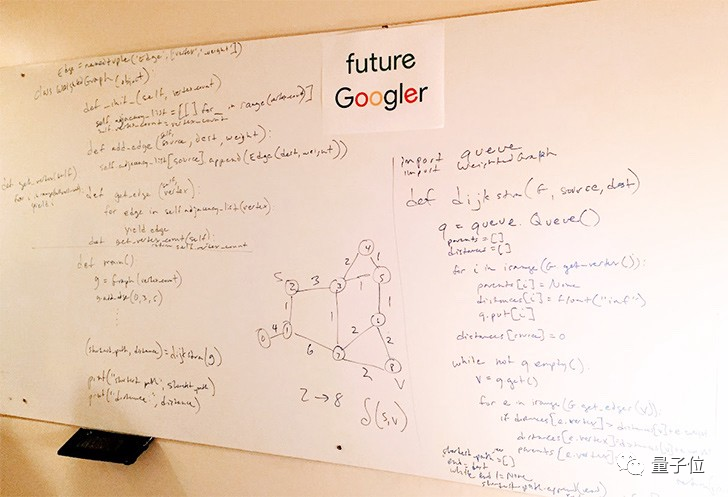 Edge = namedtuple('Edge', ['vertex', 'weight'])
class WeightedGraph(object):
def __init__(self, vertex_count)
self.adjacency_list = [[] for _ in range(vertex_count)]
self.vertex_count = vertex_count
def add_edge(self, source, dest, weight):
self.adjacency_list[source].append(Edge(dest, weight))
def get_edge(self, vertex):
for edge in self.adjacency_list(vertex)
yield edge
def get_vertex_count(self):
return self.vertex_count
def get_vertex(self)
yield i
def main()
g = Graph(vertex_count)
(shortest_path, distance) = dijkstra(g)
print("shortest path", shortest_path)
print("distance", distance)
future
Googler
4
2
1
S
2
3
3
1
5
1
1
1
0
4
1
2
6
7
2
2
8
V
2 → 8
δ(s,v)
import queue
import WeightedGraph
def dijkstra(G, source, dest)
q = queue.Queue()
parents = []
distances = []
for i in range(G.get_vertex()):
parents[i] = None
distances[i] = float("inf")
q.put[i]
distances[source] = 0
while not q.empty().
v = q.get()
for e in range(G.get_edges(v)):
if distances[e.vertex] > distance[v] +
distances[e.vertex]
parents[e.vertex]
shortest_path = []
end = dest
while end != None
shortest_path.append(end)
量子位